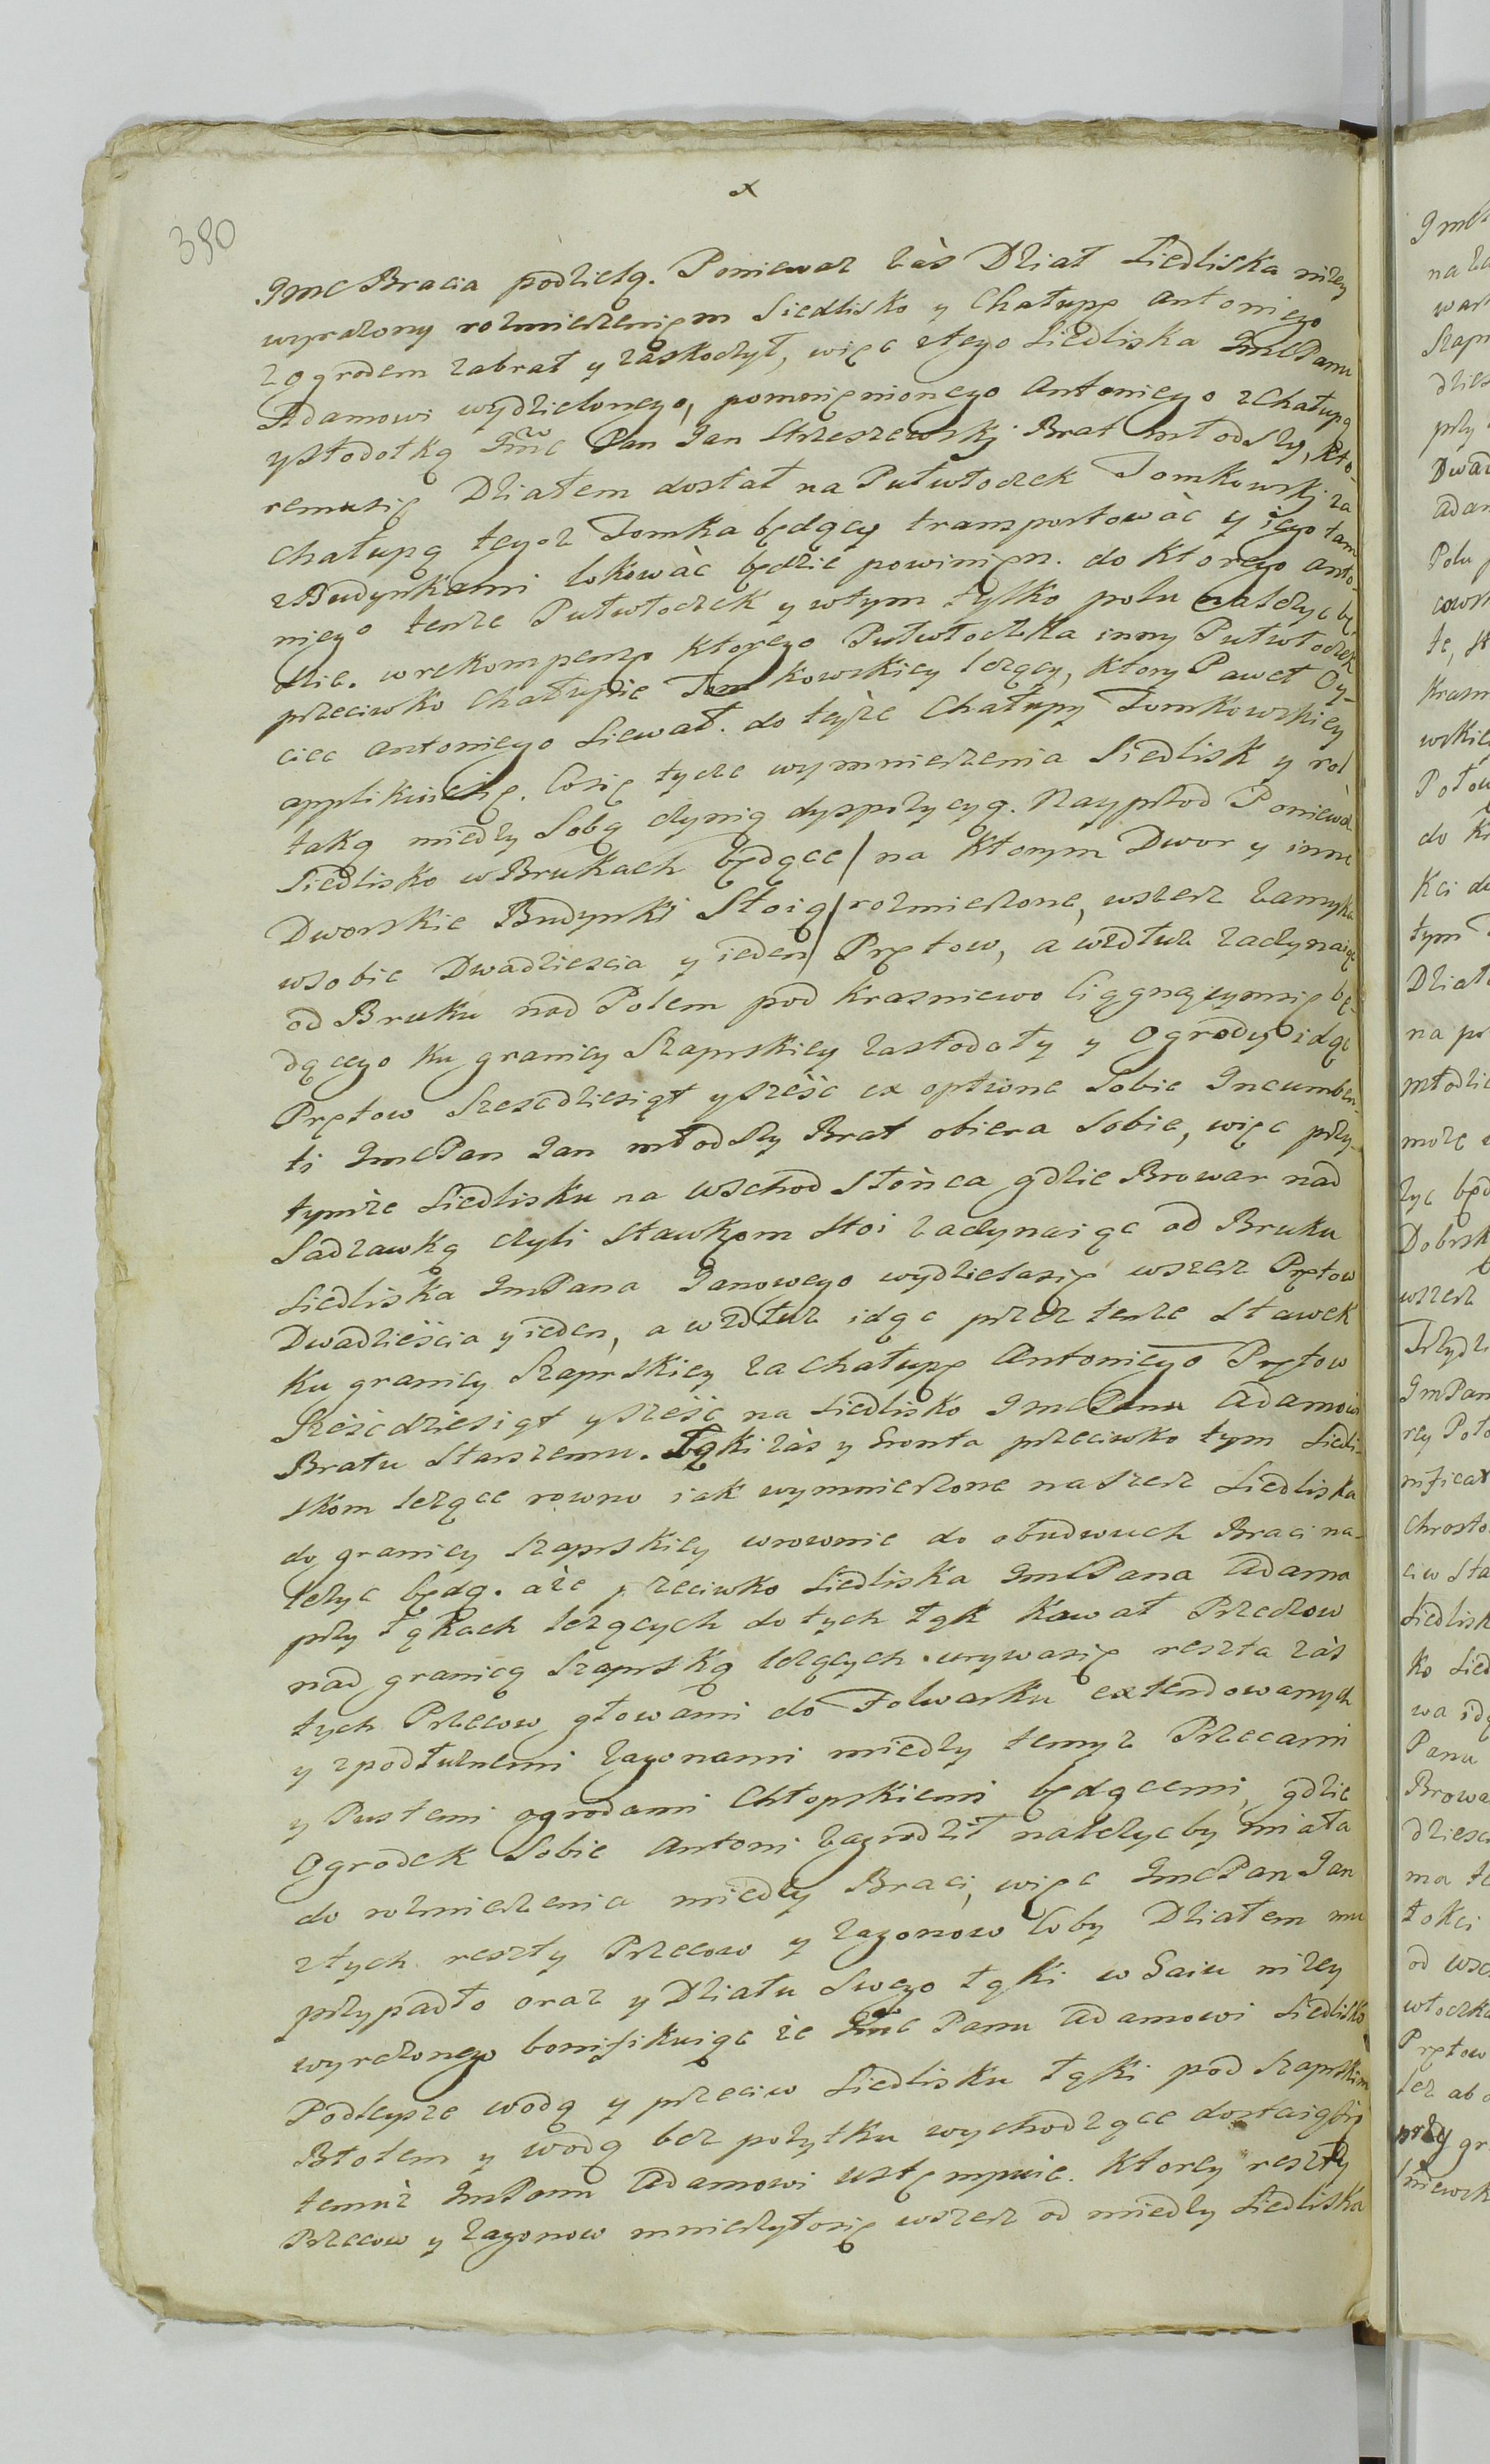 x
390
JMC Bracia podzielą. Poniewaz zàs Dział Siedliska nizey
wyrazony rozmierzeniem Siedlisko y Chałupę Antoniego
z Ogrodem zabrał y zaskoczył, więc z tego Siedliska JMCPanu
Adamowi wydzielonego, pomnienionego Antoniego z Chałupą
y stodołką Jmć Pan Jan Strzeszewskj Brat młodszy, kto-
remusię Działem dostał na Pułwłoczek Tomkowskj za
chałupą tegoz Tomka będący transportowàc y iego tam
z Budynkami lokowàc będzie powinien. do Ktorego Anto-
niego tenze Pułwłoczek y wtym tylko polu należyc bę-
dzie. w rekompensę Ktorego Pułwłoczka inny Pułwłoczek
przeciwko Chałupie Tomkowskiey lezący, Ktory Paweł Oy-
ciec Antoniego Siewał. do teyże Chałupy Tomkowskiey
applikuiesię. Cosię tycze wymnierzenia Siedlisk y rol
taką miedzy Sobą czynią dyspozycyą. Nayprzod Poniewàz
Siedlisko w Brukach będące / na Ktorym Dwor y inne
Dworskie Budynki Stoią / rozmierzone, wszerz zamyka
wsobie Dwadziescia y ieden / Prętow, a wzdłuz zaczynaiąc
od Bruku nad Polem pod Krasniewo Ciągnącymsię bę-
dącego ku granicy Szaprskiey zastodoły y Ogrody idąc
Prętow Szescdziesiąt y sześc ex optione Sobie Incumben-
ti JMCPan Jan młodszy Brat obiera Sobie, więc przy-
tymże Siedlisku na Wschod Słońca gdzie Browar nad
Sadzawką czyli Stawkem Stoi zaczynaiąc od Bruku
Siedliska JmPana Janowego wydzielasię wszerz Prętow
Dwadzieścia y ieden, a wzdłuz idąc przez tenze Stawek
Ku granicy Szaprskiey za Chałupę Antoniego Prętow
Sześcdziesiąt y sześc na Siedlisko JMCPanu Adamowi
Bratu Starszemu. Łąki zàs y Gronta przeciwko tym Siedli-
skom lezące rowno iak wymnierzone na szerz Siedliska
do granicy Szaprskiey wrownie do obudwuch Braci na-
lezyc będą. aże przeciwko Siedliska JMCPana Adama
przy Łąkach lezących do tych Łąk Kawał Przeczow
nad granicą Szaprską lezących urywasię reszta zàs
tych Przecow głowami do Folwarku extendowanych
y zpodłuznemi zagonami miedzy temyz Przecami
y Pustemi ogrodami Chłopskiemi będącemi, gdzie
Ogrodek Sobie Antoni zagrodził należycby miała
do rozmierzenia miedzy Braci, więc JMCPan Jan
z tych reszty Przecow y zagonow coby Działem mu
przypadło oraz y Działu Swego łąki w Gaiu nizey
wyrazonego bonifikuiąc że Jmć Panu Adamowi Siedlisko
Podleysze wodą y przeciw Siedlisku łąki pod Szaprskim
Błotem y wodą bez pozytku wychodzące dostaiąsię
temuż JmPanu Adamowi ustempuie. Ktorey reszty
Przecow y zagonow mnierzyłosię wszerz od miedzy Siedliska